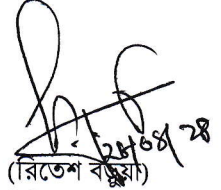 ২৮/০৪/২৪
(রিতেশ বড়ুয়া)